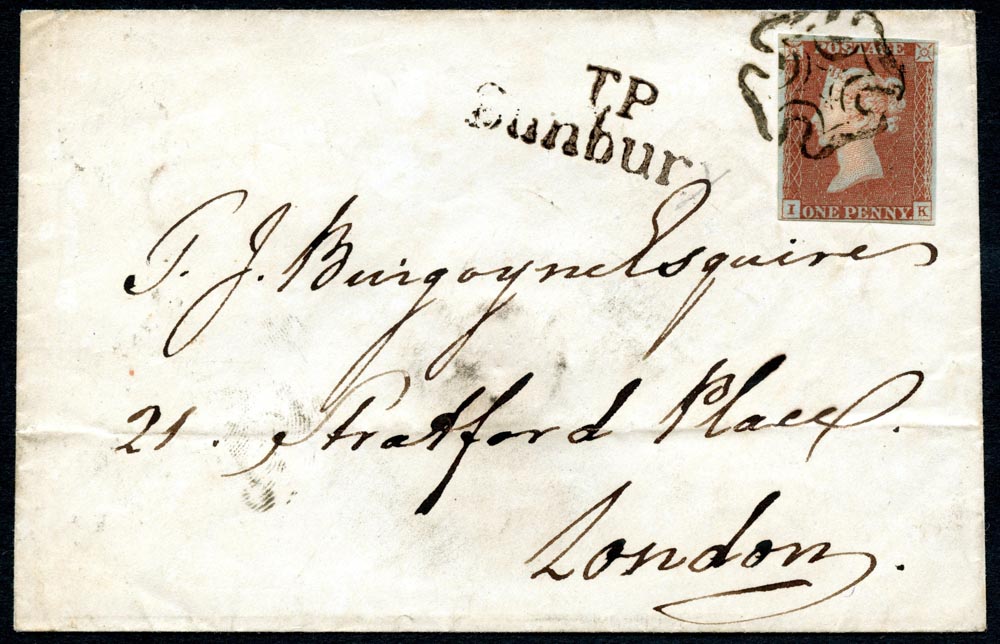 T.P
Sunbury
POSTAGE
I ONE PENNY K
T. J. Burgoyne Esquire
21. Stratford Place.
London.